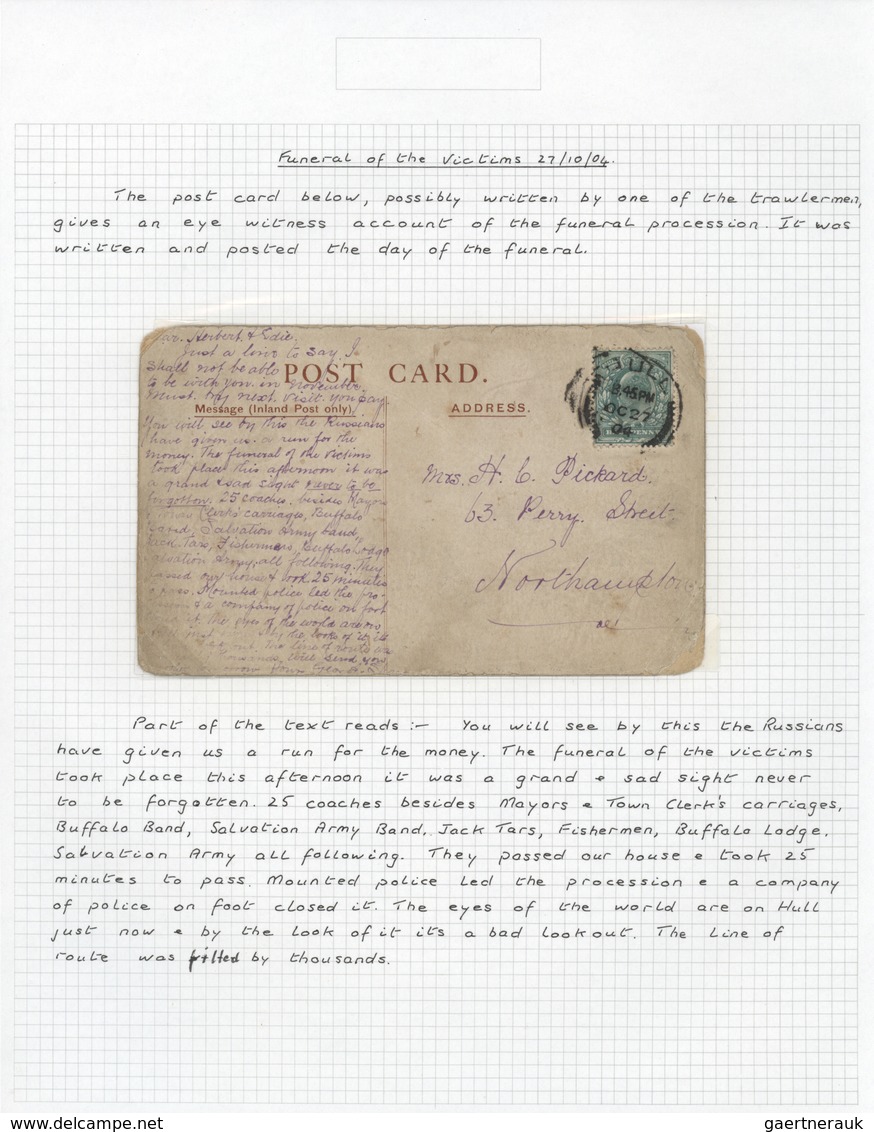 Funeral of the Victims 27/10/04.
The post card below, possibly written by one of the trawlermen,
gives an eye witness account of the funeral procession. It was
written and posted the day of the funeral.
Herbert & Edie.
Just a line to say I
shall not be able
to be with you in November.
must. my next. visit. you say
POST CARD.
Message (Inland Post only).
ADDRESS.
HULL
8.45PM
OC 27
04
You will see by this the Russians
have given us a run for the
money. The funeral of the victims
took place this afternoon it was
a grand & sad sight never to be
forgotten. 25 coaches. besides Mayors
Clerk's carriages, Buffalo
Band, Salvation Army band,
Jack Tars, Fishermen, Buffalo Lodge
Salvation Army, all following. They
passed our house & took 25 minutes
to pass. Mounted police led the pro-
& a company of police on foot
the eyes of the world are on
by the look of it its
line of route
will send you
Mrs. H. C. Pickard.
63. Perry. Street.
Northampton
Part of the text reads :- You will see by this the Russians
have given us a run for the money. The funeral of the victims
took place this afternoon it was a grand & sad sight never
to be forgotten. 25 coaches besides Mayors & Town Clerk's carriages,
Buffalo Band, Salvation Army Band, Jack Tars, Fishermen, Buffalo Lodge.
Salvation Army all following. They passed our house & took 25
minutes to pass. Mounted police led the procession & a company
of police on foot closed it. The eyes of the world are on Hull
just now & by the look of it its a bad lookout. The line of
route was by thousands.
delcampe.net
gaertnerauk